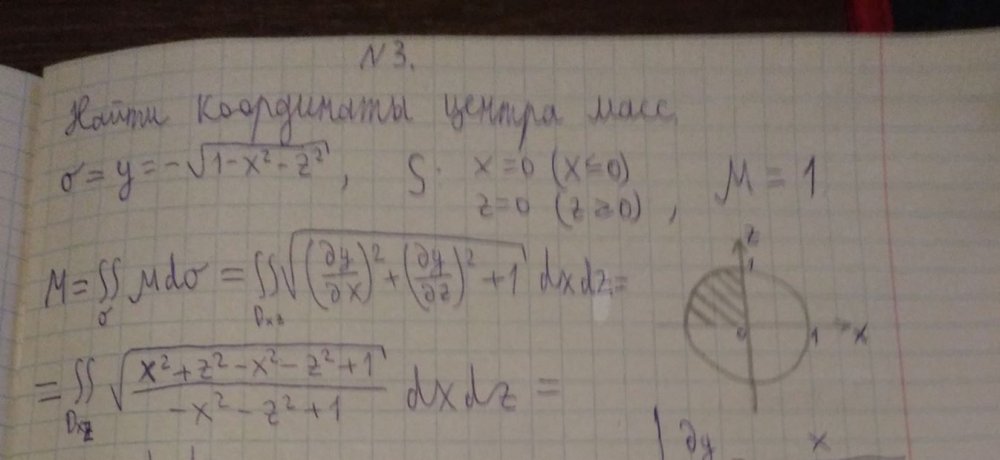 N3.
Найти координаты центра масс
σ = y = -√(1-x²-z²), S: x=0 (x≤0) μ = 1
z=0 (z≥0),
M = ∬_σ μdσ = ∬_Dxz √((∂y/∂x)² + (∂y/∂z)² + 1) dxdz =
z
1
0 1 x
= ∬_Dxz √((x²+z²-x²-z²+1)/(-x²-z²+1)) dxdz =
∂y x